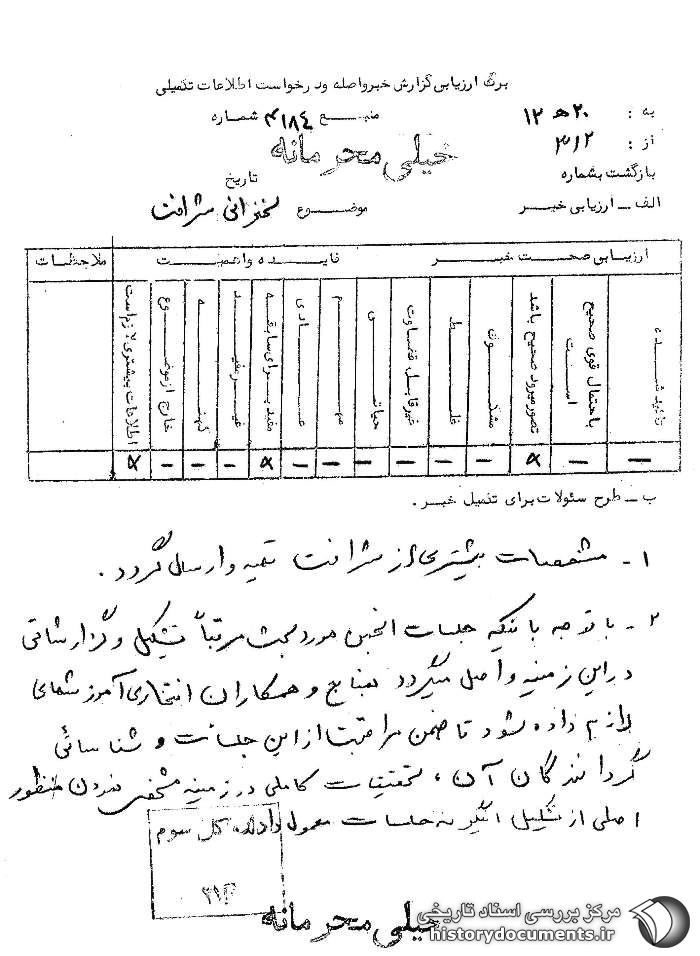 برگ ارزیابی گزارش خبر واصله و درخواست اطلاعات تکمیلی
به : ۲۰ ﻫ ۱۲
منبـــع ۴۱۸۴ شماره
از : ۳۱۲
خیلی محرمانه
بازگشت بشماره
تاریخ
الف ـ ارزیابی خبر
موضوع سخنرانی شرافت
ارزیابی صحت خبر فایده و اهمیت ملاحظات
تائید شده
باحتمال قوی صحیح است
تصور میرود صحیح باشد
مشکوک
غلط
غیرقابل قضاوت
حیاتی
مهم
عادی
مفید برای سابقه
غیرمفید
کهنه
خارج از موضوع
اطلاعات بیشتری لازم است
— — x — — — — — — x — — — x
ب ـ طرح سئوالات برای تکمیل خبر .
۱ - مشخصات بیشتری از شرافت تهیه و ارسال گردد .
۲ - با توجه باینکه جلسات انجمن مورد بحث مرتباً تشکیل و گزارشاتی
در این زمینه واصل میگردد بمنابع و همکاران افتخاری آموزشهای
لازم داده شود تا ضمن مراقبت از این جلسات و شناسائی
گردانندگان آن ، تحقیقات کاملی در زمینه مشخص نمودن منظور
اصلی از تشکیل اینگونه جلسات معمول دارند.
کل سوم
۳۱۲
خیلی محرمانه
مرکز بررسی اسناد تاریخی
historydocuments.ir